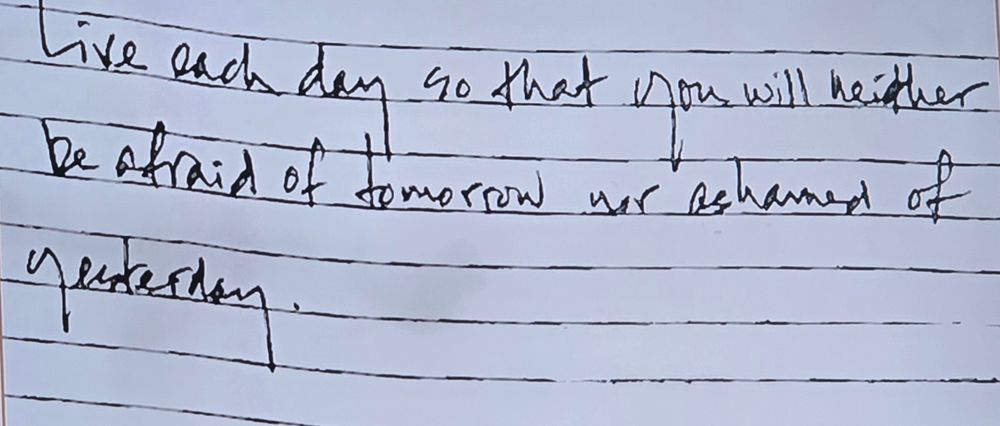 Live each day so that you will neither
be afraid of tomorrow nor ashamed of
yesterday.